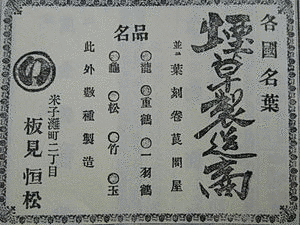 各國名葉
煙草製造商
並ニ葉刻卷莨問屋
品名
◉龍◉重鶴◉一羽鶴
◉龜◉松◉竹◉玉
此外數種製造
の
米子灘町二丁目
板見恒松